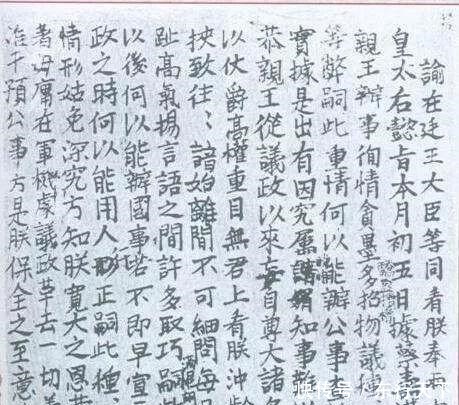 諭在廷王大臣等同看朕奉
皇太后懿旨本月初五日據蔡
親王辦事徇情貪墨多招物議
等弊嗣此重情何以能辦公事
實據是出有因究屬曖昧知事
恭親王從議政以來妄自尊大諸
以仗爵高權重目無君上看朕沖齡
挾致往〻諳始離間不可細問每
趾高氣揚言語之間許多取巧
以後何以能辦國事若不即早宣
政之時何以能用人行正嗣此種
情形姑免深究方知朕寬大之恩恭
著毋庸在軍機處議政革去一切差
准干預公事方是朕保全之至意
快传号